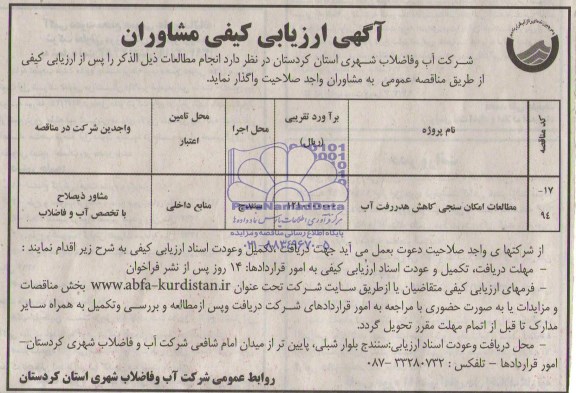 آگهی ارزیابی کیفی مشاوران
شرکت آب وفاضلاب شهری استان کردستان در نظر دارد انجام مطالعات ذیل الذکر را پس از ارزیابی کیفی
از طریق مناقصه عمومی به مشاوران واجد صلاحیت واگذار نماید.
کد مناقصه
نام پروژه
برآ ورد تقریبی (ریال)
محل اجرا
محل تامین اعتبار
واجدین شرکت در مناقصه
۱۷-
۹۴
مطالعات امکان سنجی کاهش هدررفت آب
سنندج
منابع داخلی
مشاور ذیصلاح
با تخصص آب و فاضلاب
ParsNamadData
پایگاه اطلاع رسانی مناقصه و مزایده
۰۲۱-۸۸۳۴۹۶۷۰-۵
از شرکتها ی واجد صلاحیت دعوت بعمل می آید جهت دریافت ،تکمیل وعودت اسناد ارزیابی کیفی به شرح زیر اقدام نمایند :
- مهلت دریافت، تکمیل و عودت اسناد ارزیابی کیفی به امور قراردادها: ۱۴ روز پس از نشر فراخوان
- فرمهای ارزیابی کیفی متقاضیان یا ازطریق سایت شرکت تحت عنوان www.abfa-kurdistan.ir بخش مناقصات
و مزایدات یا به صورت حضوری با مراجعه به امور قراردادهای شرکت دریافت وپس ازمطالعه و بررسی وتکمیل به همراه سایر
مدارک تا قبل از اتمام مهلت مقرر تحویل گردد.
- محل دریافت وعودت اسناد ارزیابی:سنندج بلوار شبلی، پایین تر از میدان امام شافعی شرکت آب و فاضلاب شهری کردستان–
امور قراردادها - تلفکس : ۳۳۲۸۰۷۳۲ -۰۸۷
روابط عمومی شرکت آب وفاضلاب شهری استان کردستان